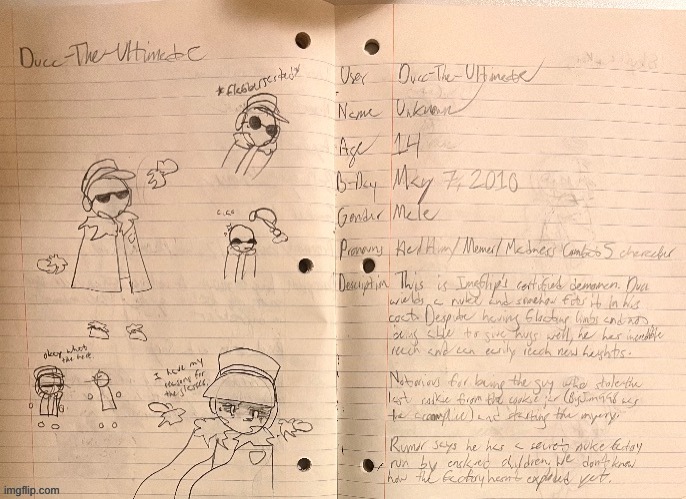 Ducc-The-Ultimate
*flabbergasted*
okay what
the hell.
I have my
reasons for
the
User Ducc-The-Ultimate
Name Unknown
Age 14
B-Day May 7, 2010
Gender Male
Pronouns He/Him/Memer/Madness Combat 5 character
Description This is Imgflip's certified demoman. Ducc
wields a nuke and somehow fits it in his
coat. Despite having floating limbs and not
being able to give hugs well, he has incredible
reach and can easily reach new heights.
Notorious for being the guy who stole the
last cookie from the cookie jar ( was
the accomplice) and starting the
Rumor says he has a secret nuke factory
run by children. We don't know
how the factory hasn't exploded yet.
imgflip.com